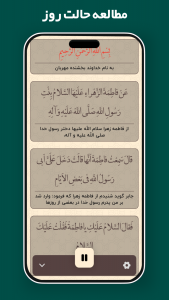 مطالعه حالت روز
بِسْمِ اللهِ الرَّحْمنِ الرَّحيمِ
به نام خداوند بخشنده مهربان
عَنْ فاطِمَةَ الزَّهْراءِ عَلَيْهَا السَّلامُ بِنْتِ
رَسُولِ اللهِ صَلَّى اللهُ عَلَيْهِ وَآلِهِ
از فاطمه زهرا سلام الله علیها دختر رسول خدا
صلی الله علیه و آله،
قالَ سَمِعْتُ فاطِمَةَ اَنَّها قالَتْ دَخَلَ عَلَيَّ اَبي
رَسُولُ اللهِ في بَعْضِ الْاَيّامِ
جابر گوید شنیدم از فاطمه زهرا که فرمود: وارد شد
بر من پدرم رسول خدا در بعضی از روزها
فَقالَ السَّلامُ عَلَيْكِ يا فاطِمَةُ فَقُلْتُ عَلَيْكَ
السَّلامُ